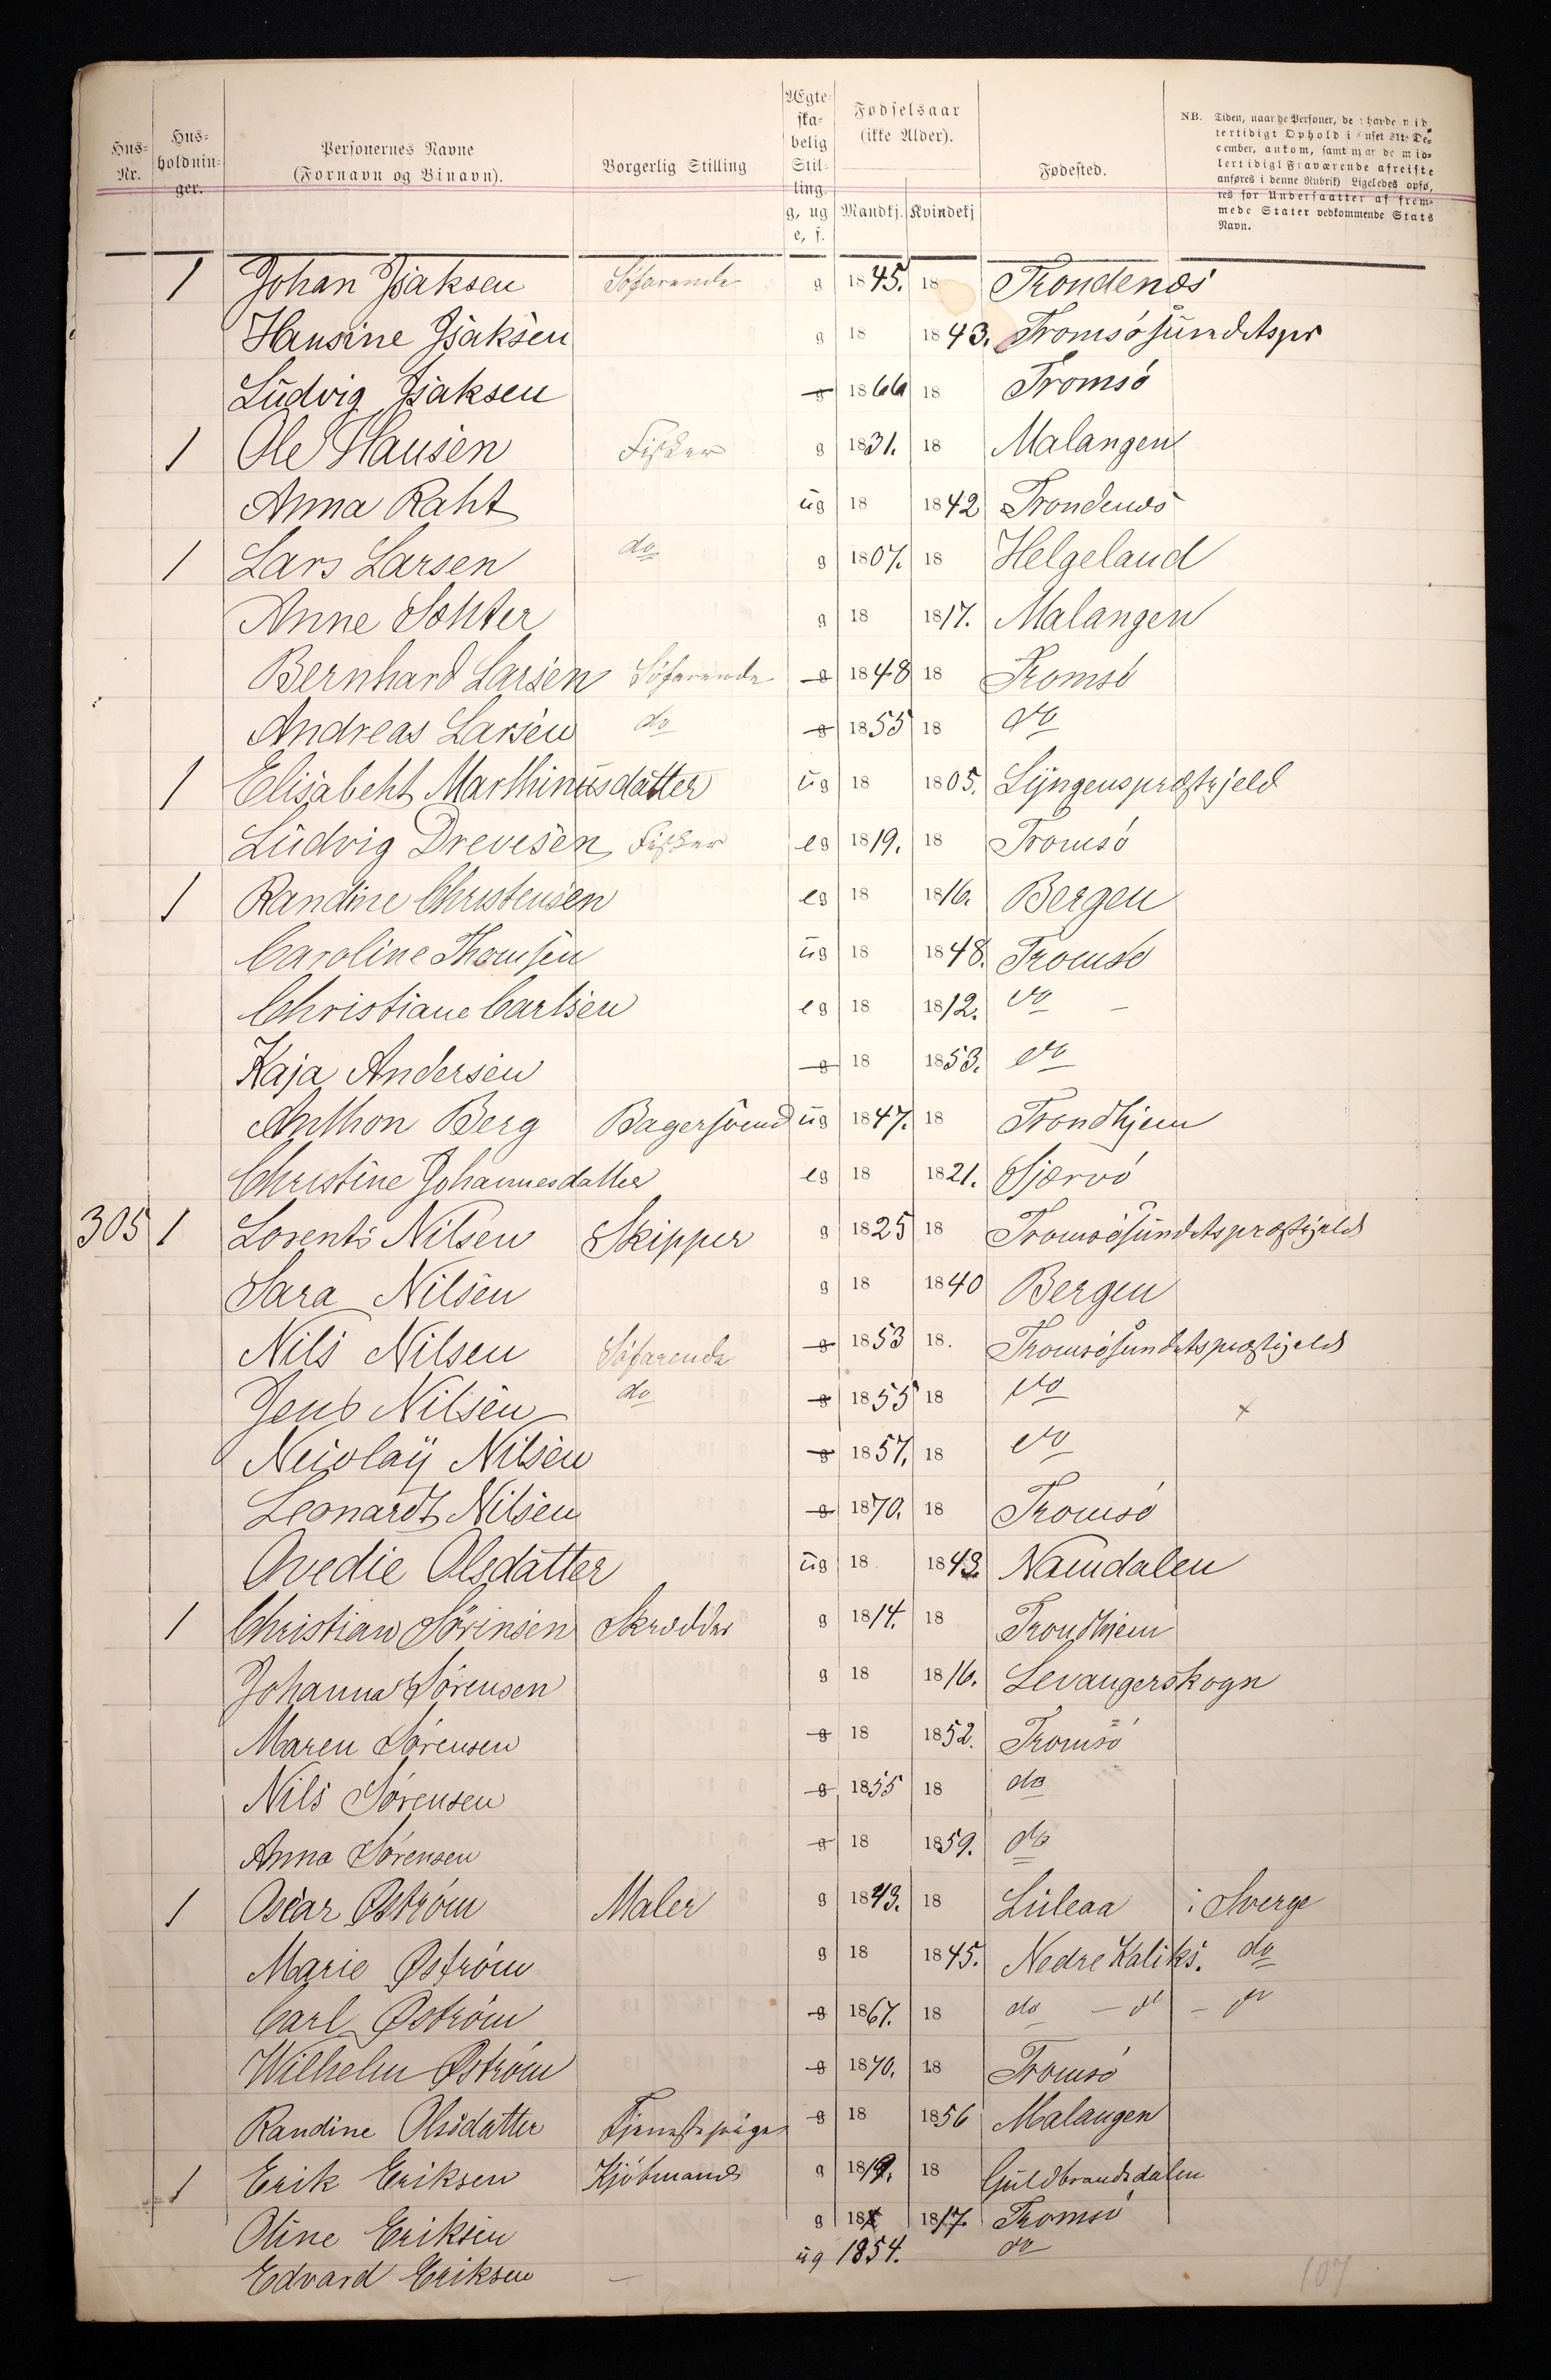 Hus-Nr. Hus-holdnin-ger. Personernes Navne (Fornavn og Binavn). Borgerlig Stilling Ægte-ska-belig Stil-ling. g, ug e, f. Fødselsaar (ikke Alder). Mandkj. Kvindekj Fødested.
NB. Tiden, naar de Personer, der havde mid-
lertidigt Ophold i Huset 31te De-
cember, ankom, samt naar de mid-
lertidigt Fraværende afreiste
anføres i denne Rubrik) Ligeledes opfø,
res for Undersaatter af frem-
mede Stater vedkommende Stats
Navn.
1 Johan Isaksen Söfarende g 1845. 18 Trondenæs
Hansine Isaksen g 18 1843. Tromsösundets pr
Ludvig Isaksen g 1866 18 Tromsö
1 Ole Hansen Fisker g 1831. 18 Malangen
Anna Raht ug 18 1842 Trondenæs
1 Lars Larsen do g 1807. 18 Helgeland
Anne g 18 1817. Malangen
Bernhard Larsen Söfarende g 1848 18 Tromsö
Andreas Larsen do g 1855 18 do
1 Elisabeht Marthinusdatter ug 18 1805. Lyngens præstejeld
Ludvig Drevesen Fisker eg 1819. 18 Tromsö
1 Randine Christensen eg 18 1816. Bergen
Caroline Thomsen ug 18 1848. Tromsö
Christiane Carlsen eg 18 1812. do –
Kaja Andersen g 18 1853. do
Anthon Berg Bagersvend ug 1847. 18 Trondhjem
Christine Johannesdatter eg 18 1821. Skjærvö
305 1 Lorents Nilsen Skipper g 1825 18 Tromsösundets præstejeld
Sara Nilsen g 18 1840 Bergen
Nils Nilsen Söfarende g 1853 18. Tromsösundets præstejeld
Jens Nilsen do g 1855 18 do x
Neiolaÿ Nilsen g 1857. 18 do
Leonardt Nilsen g 1870. 18 Tromsö
Ovedie Olsdatter ug 18 1843. Namdalen
1 Christian Sörinsen Skrædder g 1814. 18 Trondhjem
Johanna Sörensen g 18 1816. Levangerskogn
Maren Sörensen g 18 1852. Tromsö
Nils Sörensen g 1855 18 do
Anna Sörensen g 18 1859. do
1 Oscar Øström Maler g 1843. 18 Luleaa i Sverge
Marie Øström g 18 1845. Nedre Kaliks. do
Carl Øström g 1867. 18 do – do – do
Wilhelm Øström g 1870. 18 Tromsö
Randine Olsdatter Tjenestepige g 18 1856 Malangen
1 Erik Eriksen Kjöbmand g 1819. 18 Guldbrandsdalen
Oline Eriksen g 18 1817. Tromsö
Edvard Eriksen – ug 1854. do
107